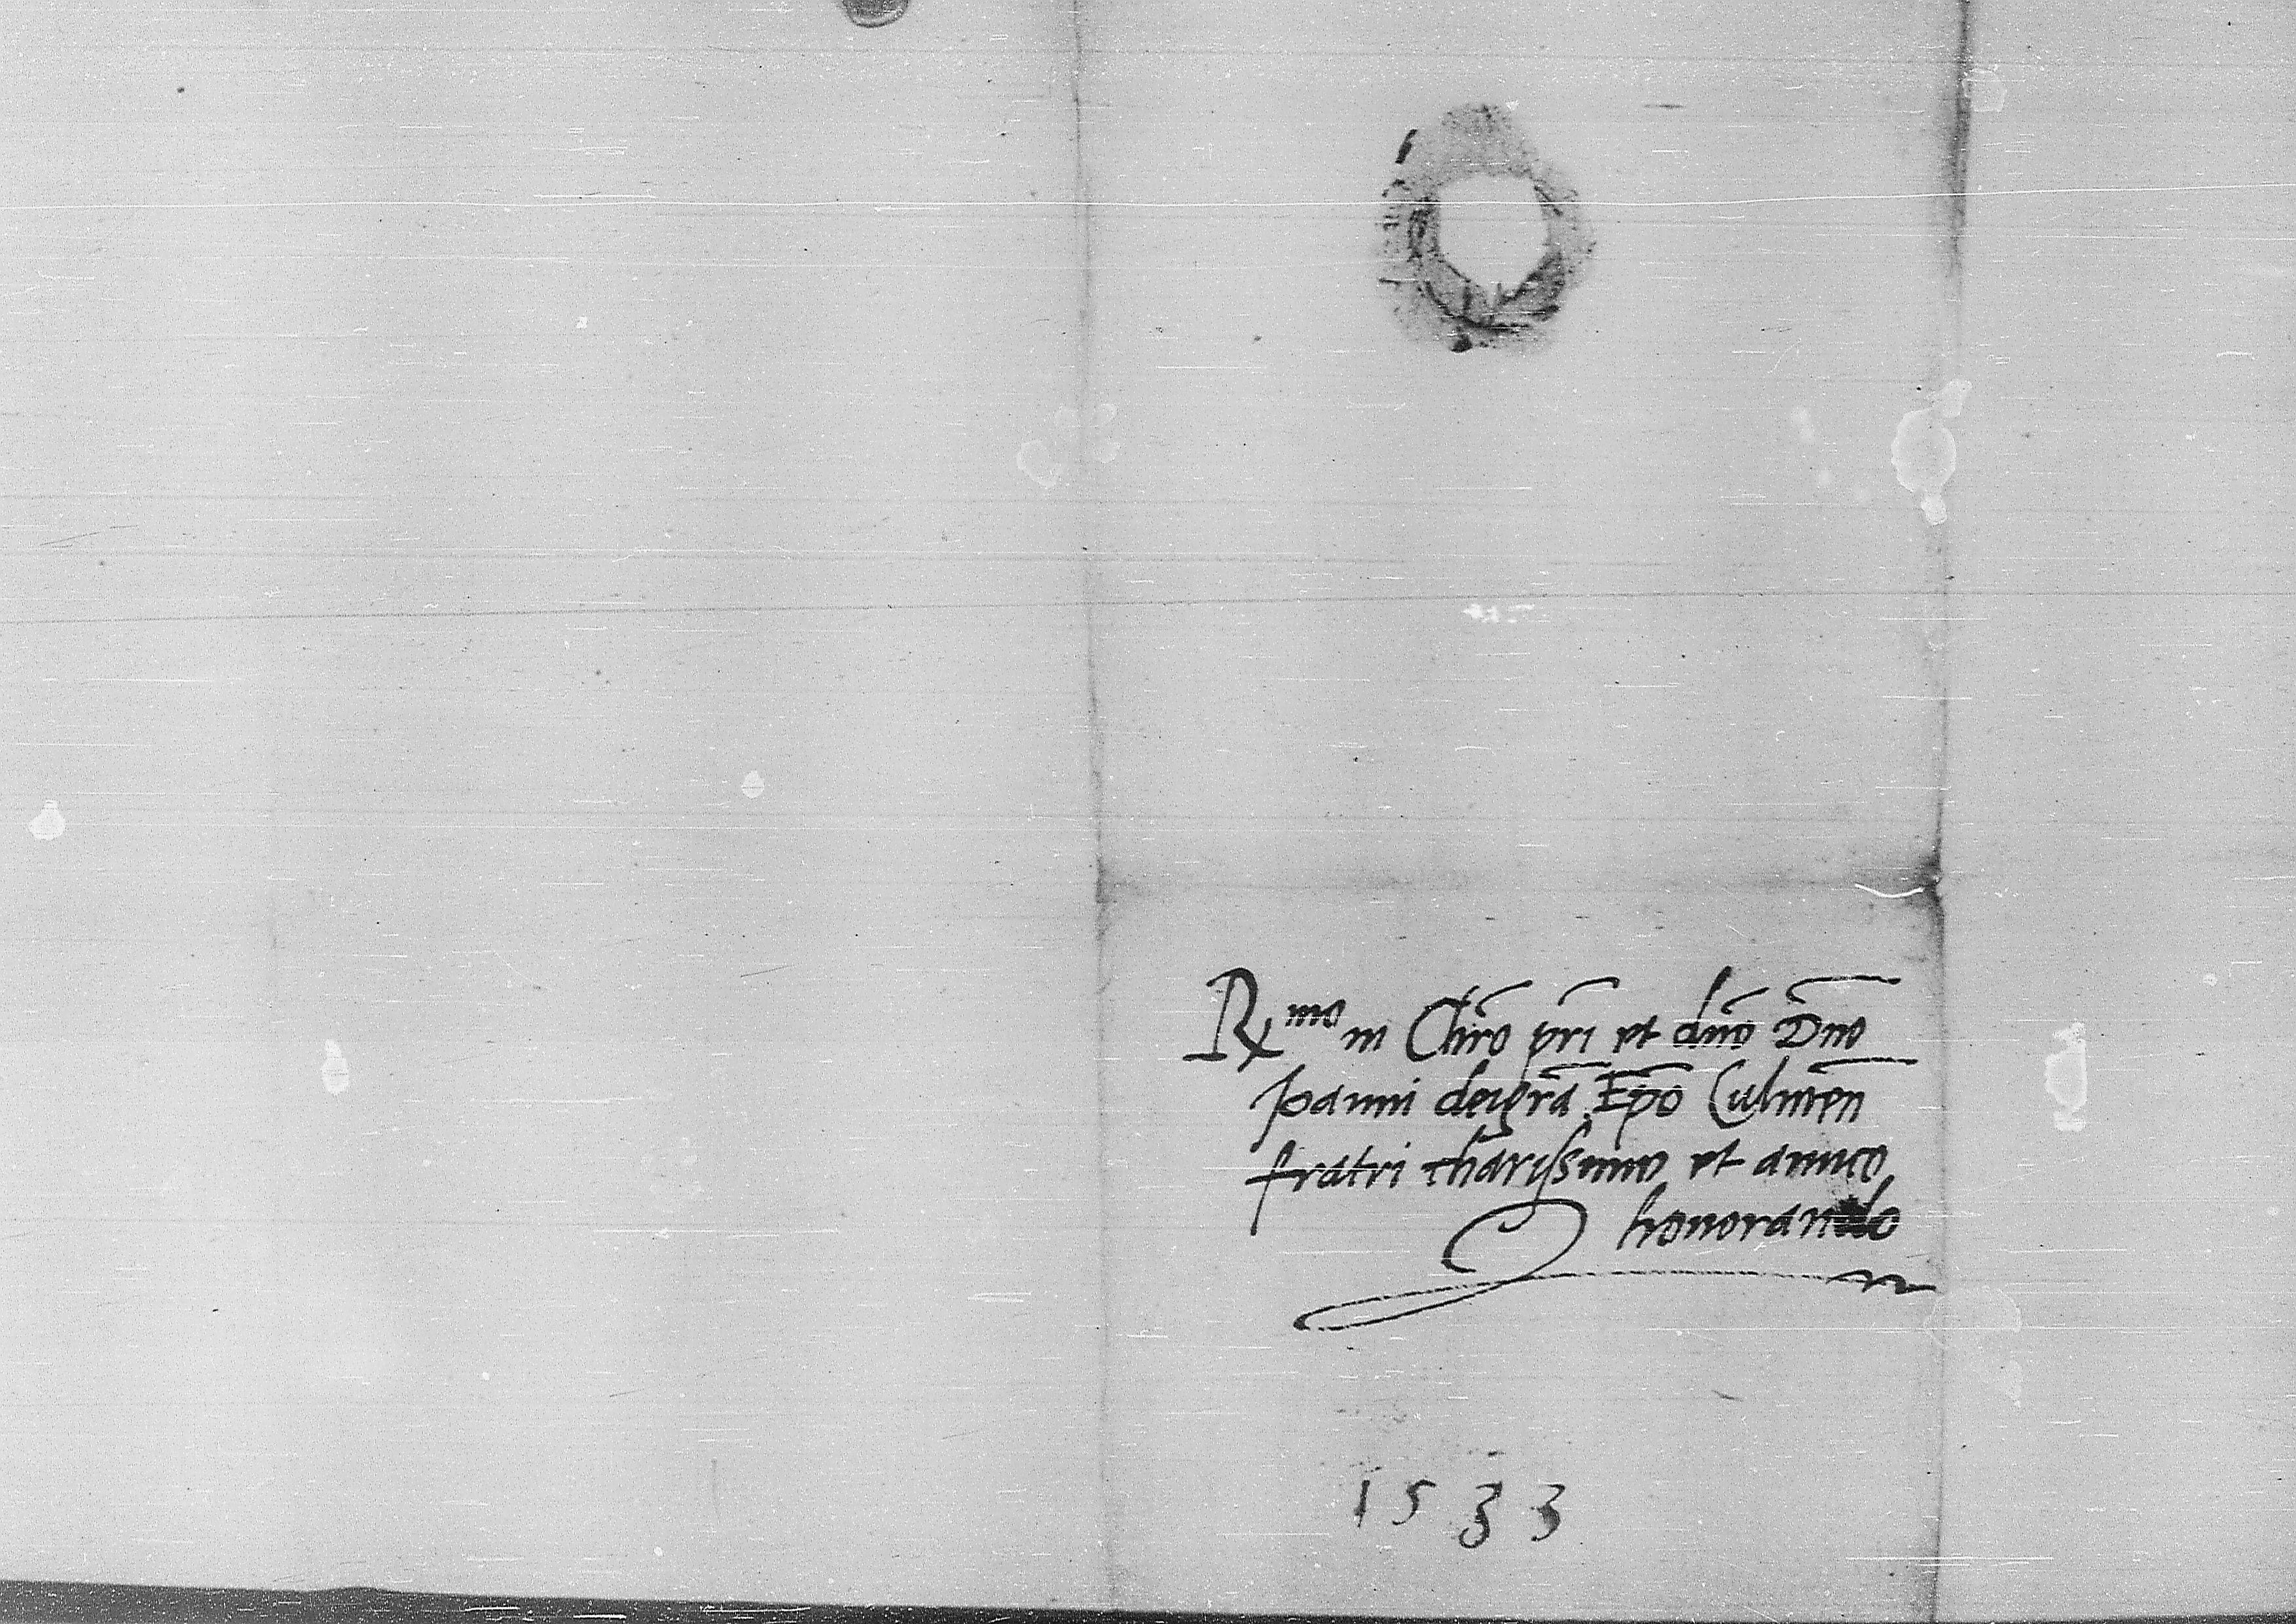 R<sup>mo</sup> in Chr̄o pr̄i et dn̄o Dn̄o
Joanni dei gr̄a Ep̄o Culmen̄
fratri charissimo et amico
honorando
1533